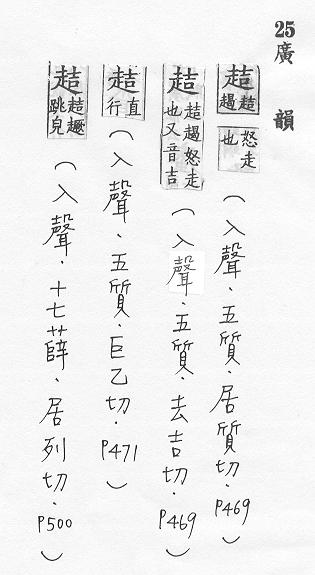 25廣韻
趌 趌怒走也(入聲.五質.居質切.P469)
趌 趌怒走也又音吉(入聲.五質.去吉切.P469)
趌 直行(入聲.五質.巨乙切.P471)
趌 趌跳皃(入聲.十七薛.居列切.P500)